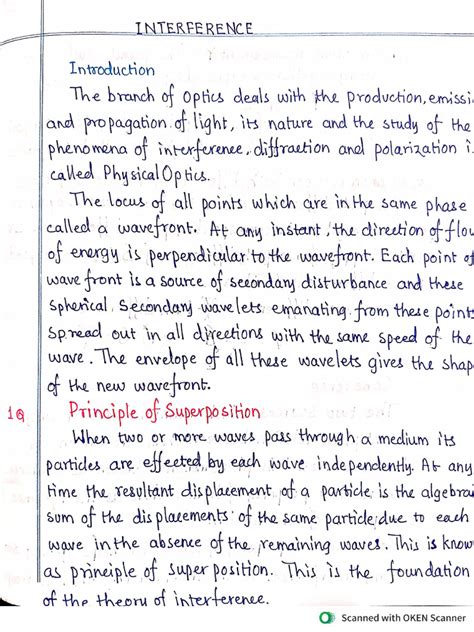 INTERFERENCE
Introduction
The branch of optics deals with the production, emissi
and propagation of light, its nature and the study of the
phenomena of interference, diffraction and polarization i
called Physical Optics.
The locus of all points which are in the same phase
called a wavefront. At any instant, the direction of flow
of energy is perpendicular to the wavefront. Each point of
wave front is a source of secondary disturbance and these
spherical secondary wavelets emanating from these points
spread out in all directions with the same speed of the
wave. The envelope of all these wavelets gives the shap
of the new wavefront.
1Q Principle of Superposition
When two or more waves pass through a medium its
particles are effected by each wave independently. At any
time the resultant displacement of a particle is the algebrai
sum of the displacements of the same particle due to each
wave in the absence of the remaining waves. This is know
as principle of super position. This is the foundation
of the theory of interference.
Scanned with OKEN Scanner